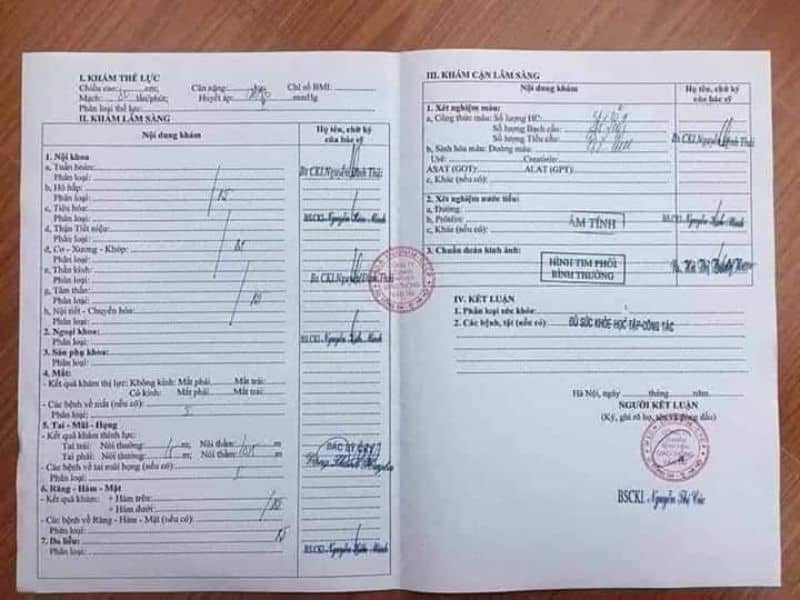 I. KHÁM THỂ LỰC
Chiều cao: cm; Cân nặng: Chỉ số BMI:
Mạch: lần/phút; Huyết áp: mmHg
Phân loại thể lực:
II. KHÁM LÂM SÀNG
Nội dung khám
Họ tên, chữ ký
của bác sỹ
1. Nội khoa
a, Tuần hoàn:
Phân loại:
b, Hô hấp:
Phân loại:
c, Tiêu hóa:
Phân loại:
d, Thận Tiết niệu:
Phân loại:
d, Cơ - Xương - Khớp:
Phân loại:
e, Thần kinh:
Phân loại:
g, Tâm thần:
Phân loại:
h, Nội tiết - Chuyển hóa:
Phân loại:
2. Ngoại khoa:
Phân loại:
3. Sản phụ khoa:
Phân loại:
4. Mắt:
- Kết quả khám thị lực: Không kính: Mắt phải Mắt trái:
Có kính: Mắt phải Mắt trái:
- Các bệnh về mắt (nếu có):
Phân loại: I
5. Tai - Mũi - Họng
- Kết quả khám thính lực:
Tai trái: Nói thường: m; Nói thầm: m
Tai phải: Nói thường: 5 m; Nói thầm: 0,5 m
- Các bệnh về tai mũi họng (nếu có)
Phân loại: I
6. Răng - Hàm - Mặt
- Kết quả khám: + Hàm trên:
+ Hàm dưới:
- Các bệnh về Răng - Hàm - Mặt (nếu có):
Phân loại:
7. Da liễu:
Phân loại:
Bs CKI Nguyễn Đình Thái
BSCKI. Nguyễn Minh
Bs CKI Nguyễn Đình Thái
BSCKI. Nguyễn Minh
BÁC SỸ CKI
BSCKI. Nguyễn Minh
III. KHÁM CẬN LÂM SÀNG
Nội dung khám
Họ tên, chữ ký
của bác sỹ
1. Xét nghiệm máu:
a, Công thức máu: Số lượng HC:
Số lượng Bạch cầu:
Số lượng Tiểu cầu:
b, Sinh hóa máu: Đường máu:
Urê: Creatinin:
ASAT (GOT): ALAT (GPT):
c, Khác (nếu có):
Bs CKI Nguyễn Đình Thái
2. Xét nghiệm nước tiểu:
a, Đường:
b, Prôtêin:
c, Khác (nếu có):
ÂM TÍNH
BSCKI. Nguyễn Minh
3. Chuẩn đoán hình ảnh:
HÌNH TIM PHỔI
BÌNH THƯỜNG
IV. KẾT LUẬN
1. Phân loại sức khỏe:
2. Các bệnh, tật (nếu có): ĐỦ SỨC KHỎE HỌC TẬP-CÔNG TÁC
Hà Nội, ngày tháng năm
NGƯỜI KẾT LUẬN
(Ký, ghi rõ họ, tên và đóng dấu)
BSCKI. Nguyễn Thị Cúc